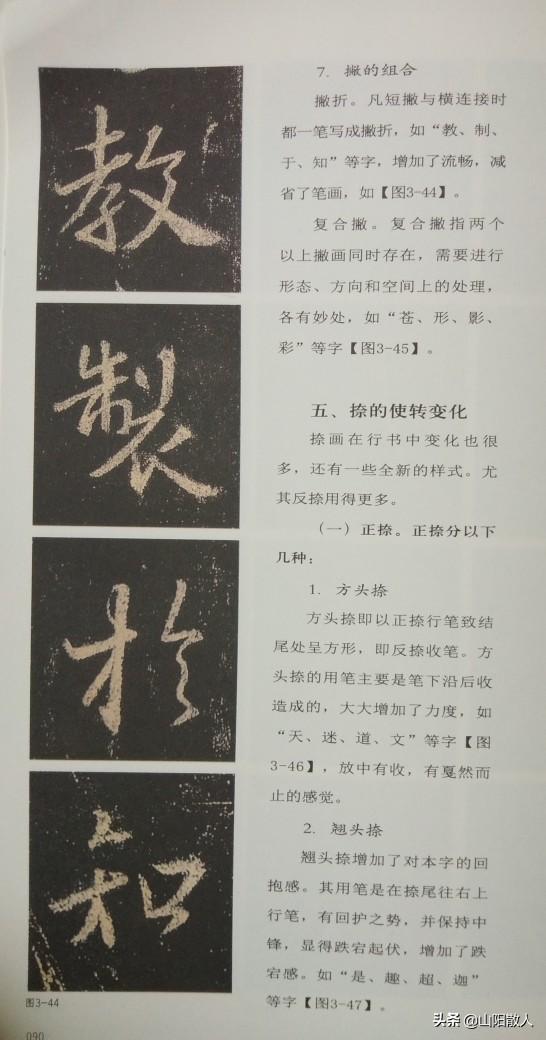 教
製
於
知
图3-44
090
7. 撇的组合
撇折。凡短撇与横连接时
都一笔写成撇折，如“教、制、
于、知”等字，增加了流畅，减
省了笔画，如【图3-44】。
复合撇。复合撇指两个
以上撇画同时存在，需要进行
形态、方向和空间上的处理，
各有妙处，如“苍、形、影、
彩”等字【图3-45】。
五、捺的使转变化
捺画在行书中变化也很
多，还有一些全新的样式。尤
其反捺用得更多。
（一）正捺。正捺分以下
几种：
1. 方头捺
方头捺即以正捺行笔致结
尾处呈方形，即反捺收笔。方
头捺的用笔主要是笔下沿后收
造成的，大大增加了力度，如
“天、迷、道、文”等字【图
3-46】，放中有收，有戛然而
止的感觉。
2. 翘头捺
翘头捺增加了对本字的回
抱感。其用笔是在捺尾往右上
行笔，有回护之势，并保持中
锋，显得跌宕起伏，增加了跌
宕感。如“是、趣、超、迦”
等字【图3-47】。
头条 @山阳散人